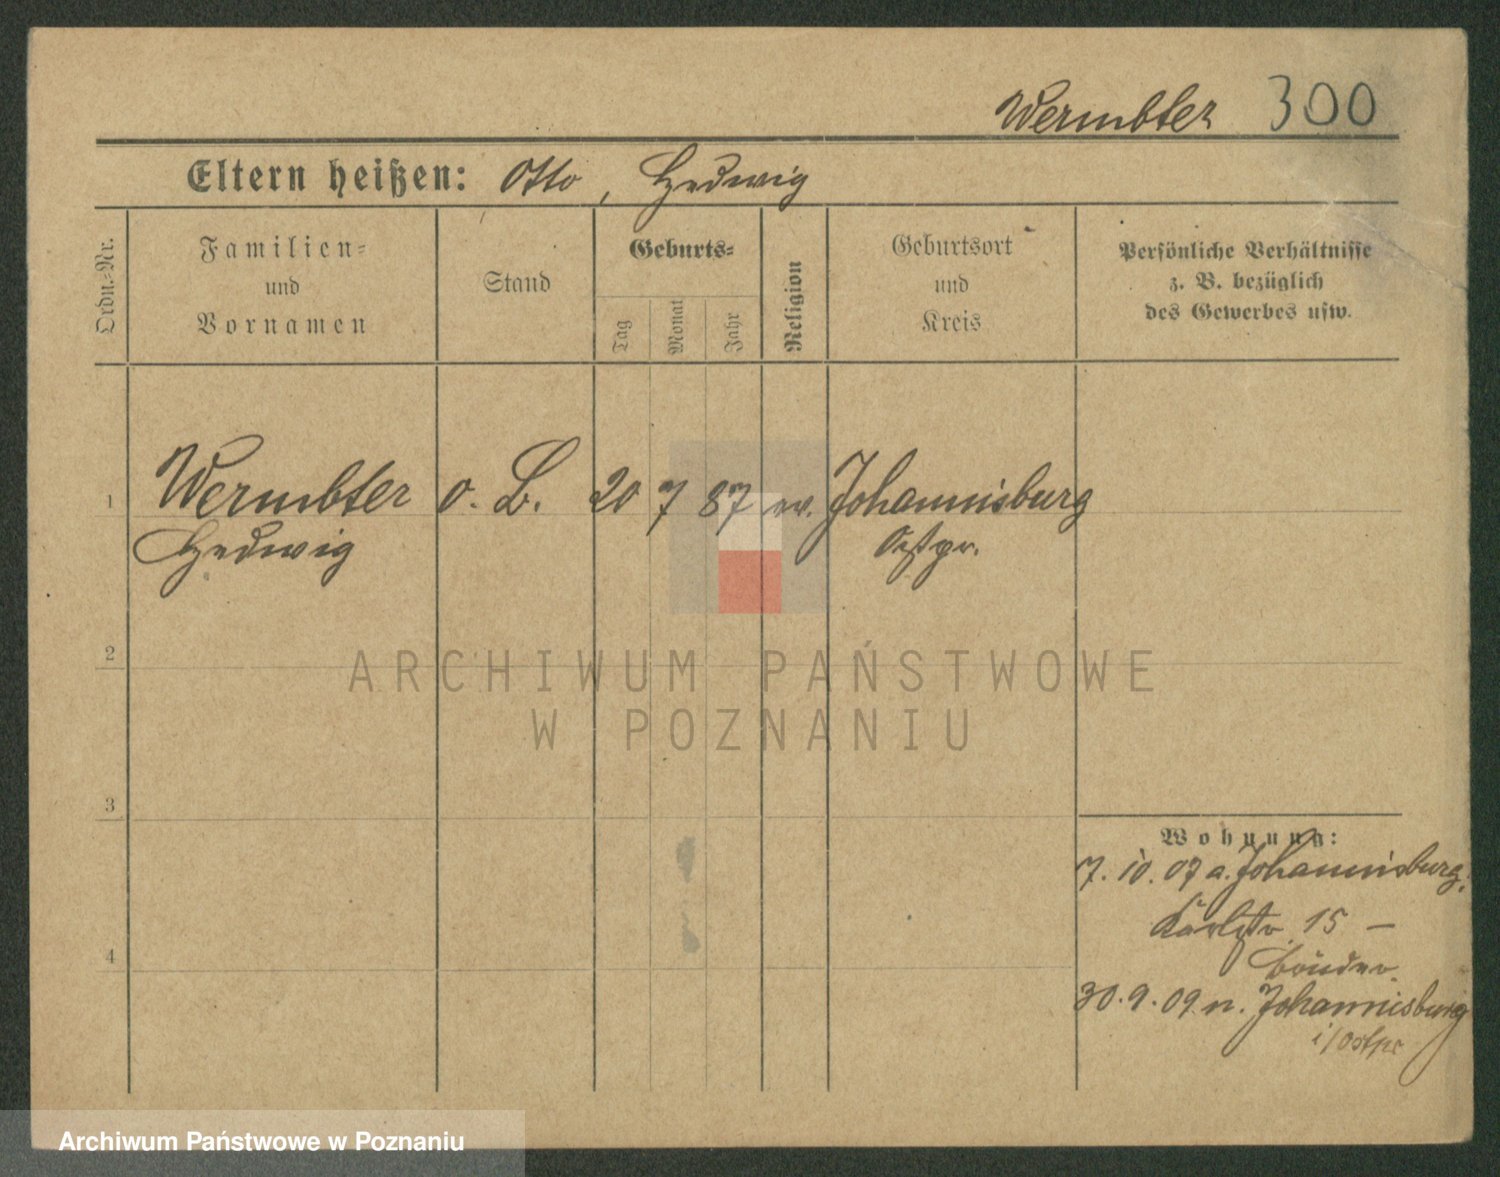 Wermbter 300
Eltern heißen: Otto, Hedwig
Ordn.-Nr.
Familien-
und
Vornamen
Stand
Geburts-
Tag
Monat
Jahr
Religion
Geburtsort
und
Kreis
Persönliche Verhältnisse
z. B. bezüglich
des Gewerbes usw.
1 Wermbter o. B. 20 7 87 ev. Johannisburg
Hedwig Ostpr.
2
3
4
Wohnung:
7. 10. 07 a. Johannisburg.
Karlstr. 15 –
30. 9. 09 n. Johannisburg
i/Ostpr
ARCHIWUM PAŃSTWOWE
W POZNANIU
Archiwum Państwowe w Poznaniu